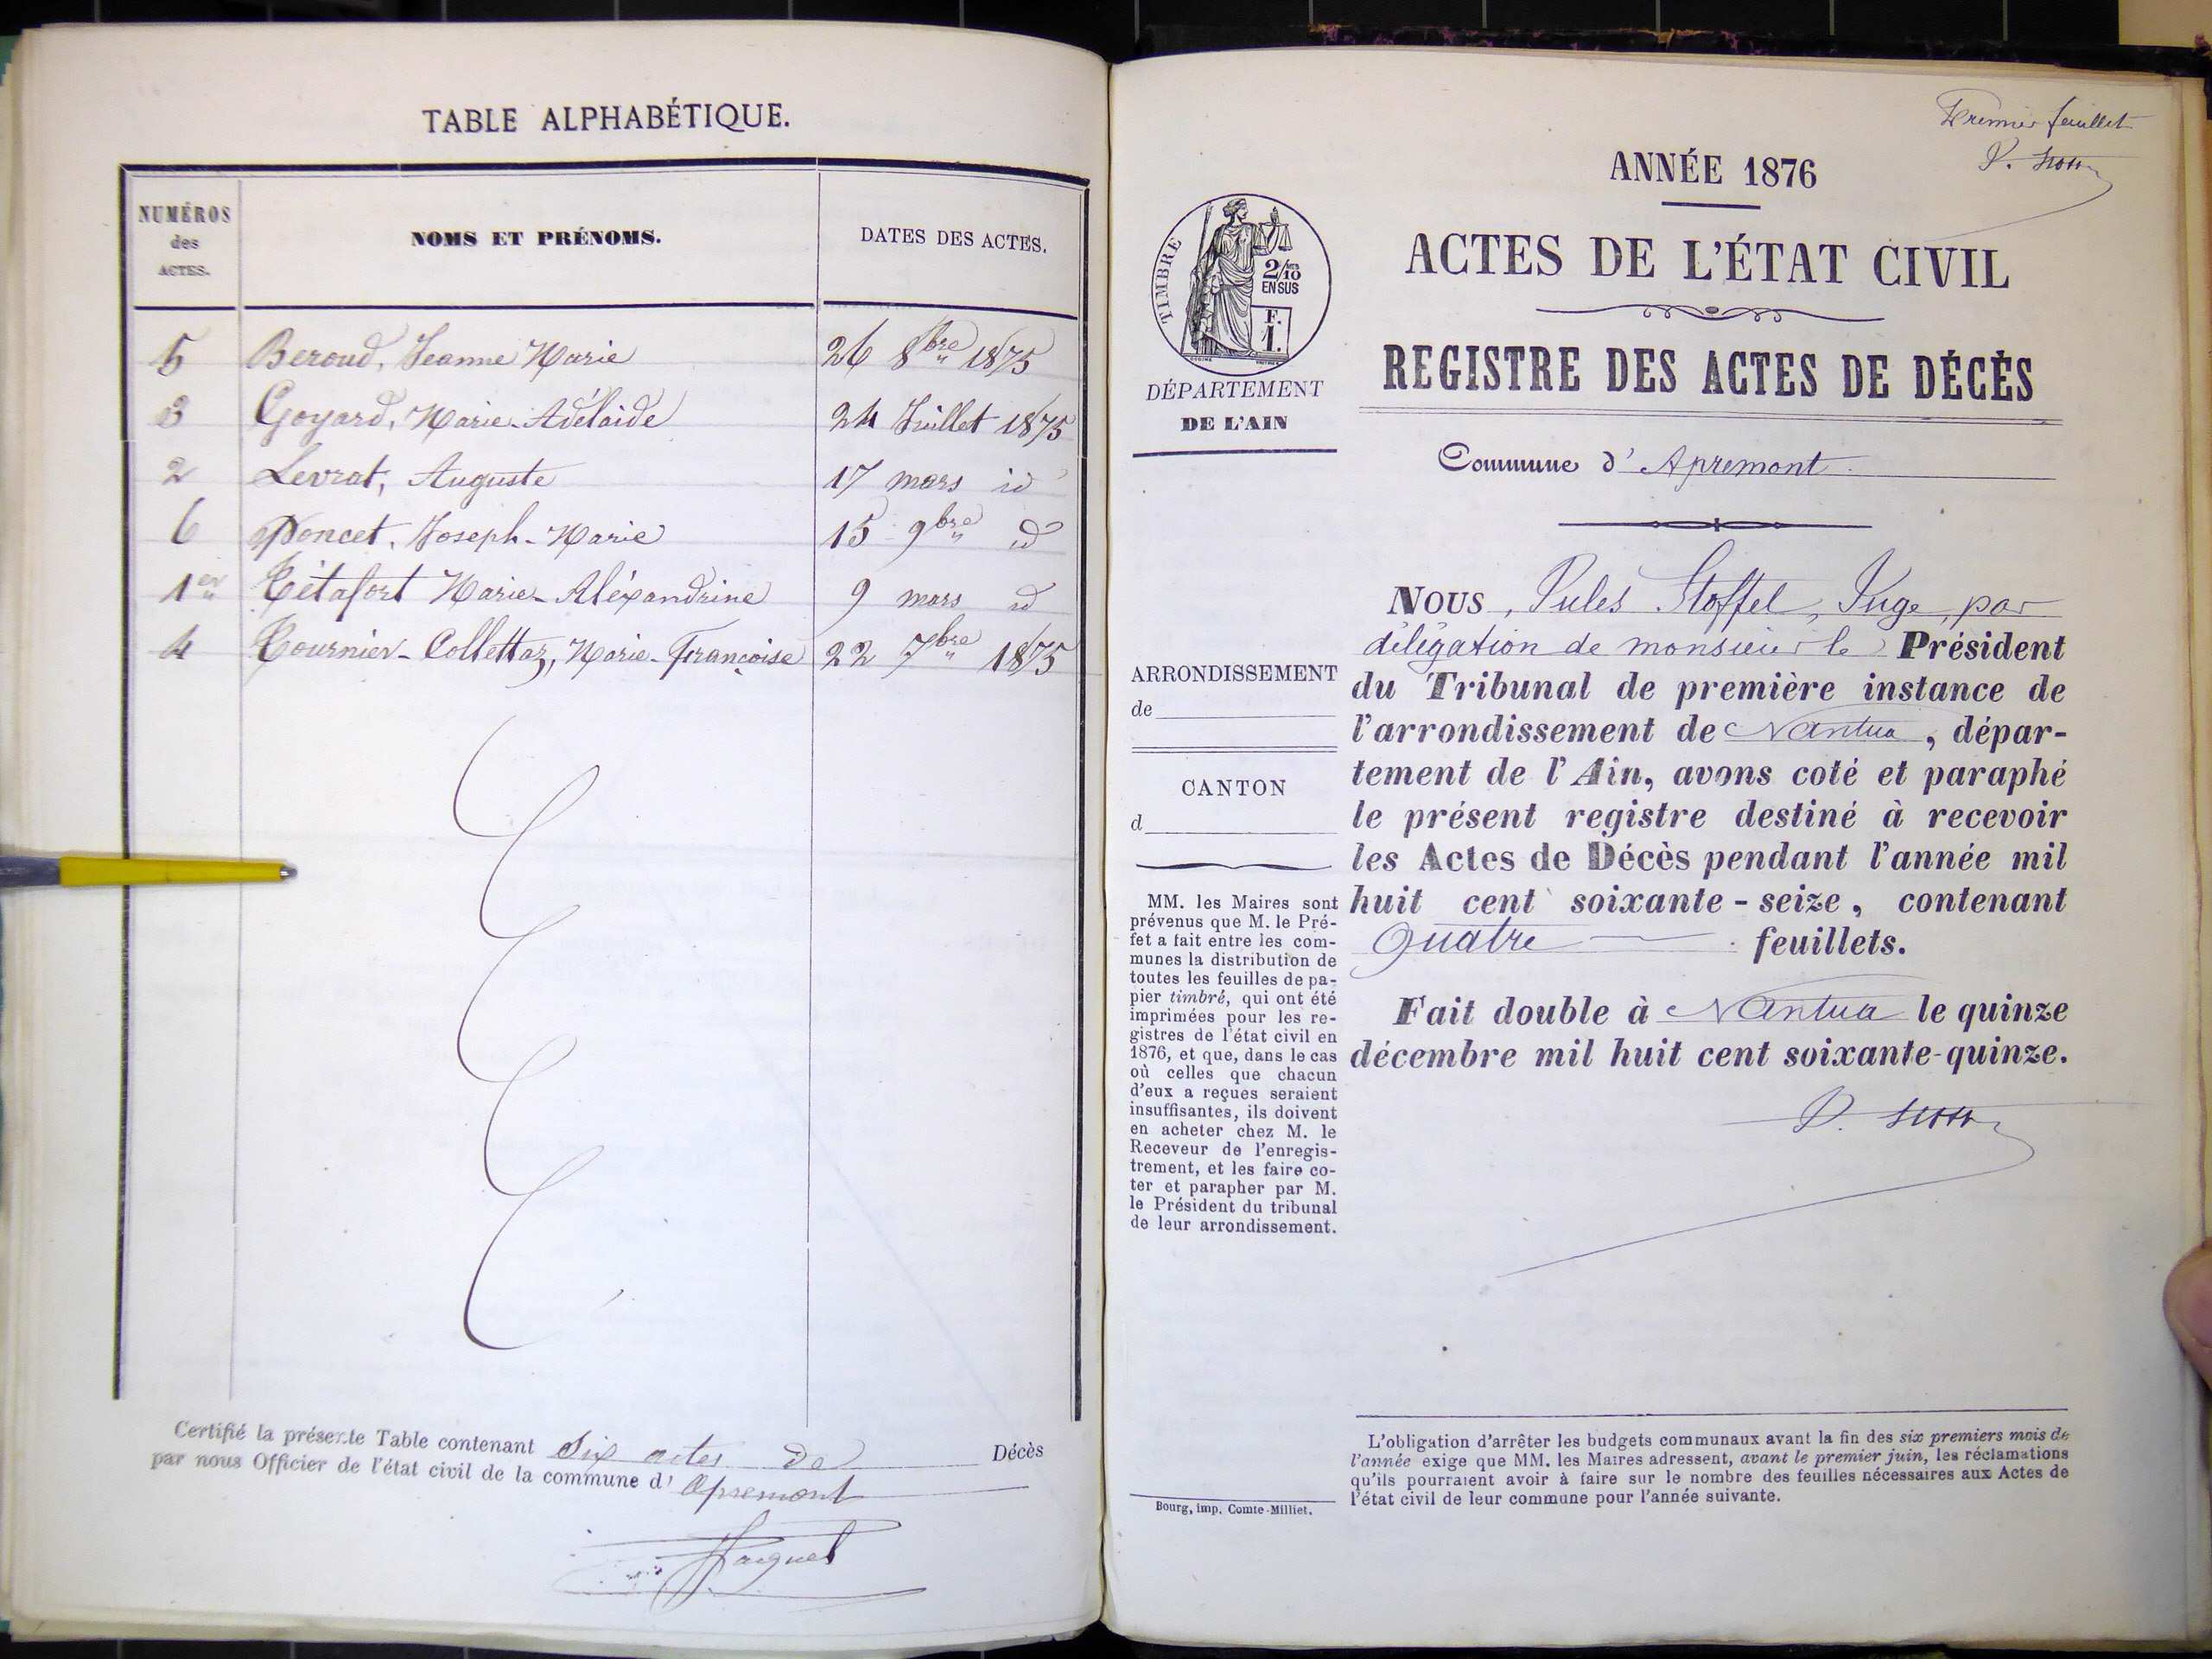 TABLE ALPHABÉTIQUE.
NUMÉROS
des
ACTES.
NOMS ET PRÉNOMS.
DATES DES ACTES.
5 Beroud, Jeanne Marie 26 8bre 1875
3 Goyard, Marie-Adélaide 24 Juillet 1875
2 Levrat, Auguste 17 mars id
6 Poncet, Joseph-Marie 15 9bre id
1er Tétafort Marie-Aléxandrine 9 mars id
4 Tournier-Collettaz, Marie-Françoise 22 7bre 1875
Certifié la présente Table contenant Six actes de Décès
par nous Officier de l'état civil de la commune d' Apremont
Premier feuillet
ANNÉE 1876
TIMBRE
2/10
EN SUS
F.
1.
DÉPARTEMENT
DE L'AIN
ACTES DE L'ÉTAT CIVIL
REGISTRE DES ACTES DE DÉCÈS
Commune d' Apremont
ARRONDISSEMENT
de
CANTON
d
MM. les Maires sont
prévenus que M. le Pré-
fet a fait entre les com-
munes la distribution de
toutes les feuilles de pa-
pier timbré, qui ont été
imprimées pour les re-
gistres de l'état civil en
1876, et que, dans le cas
où celles que chacun
d'eux a reçues seraient
insuffisantes, ils doivent
en acheter chez M. le
Receveur de l'enregis-
trement, et les faire co-
ter et parapher par M.
le Président du tribunal
de leur arrondissement.
Bourg, imp. Comte-Milliet.
NOUS, Jules Stoffel, Juge, par
délégation de monsieur le Président
du Tribunal de première instance de
l'arrondissement de Nantua, dépar-
tement de l'Ain, avons coté et paraphé
le présent registre destiné à recevoir
les Actes de Décès pendant l'année mil
huit cent soixante-seize, contenant
Quatre feuillets.
Fait double à Nantua le quinze
décembre mil huit cent soixante-quinze.
L'obligation d'arrêter les budgets communaux avant la fin des six premiers mois de
l'année exige que MM. les Maires adressent, avant le premier juin, les réclamations
qu'ils pourraient avoir à faire sur le nombre des feuilles nécessaires aux Actes de
l'état civil de leur commune pour l'année suivante.